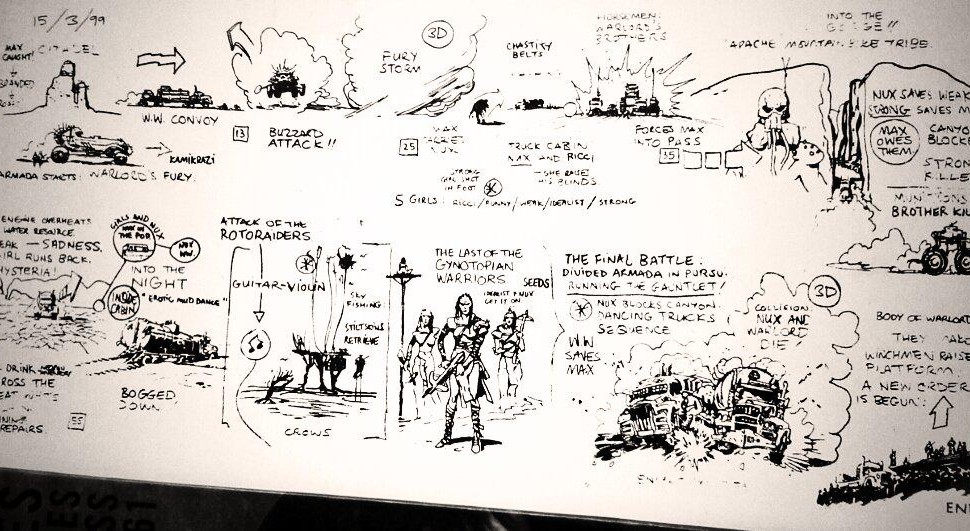 15/3/99
MAX
CAUGHT!
CITADEL
BRANDED
W.W. CONVOY
13
BUZZARD
ATTACK!!
FURY
STORM
3D
25
MAX
CHASTITY
BELTS
TRUCK CABIN
NUX AND RICCI
SHE RAISES
HIS BLINDS
HORKMEN:
WARLORD'S
BROTHERS
FORCES MAX
INTO PASS
35
APACHE MOUNTAIN BIKE TRIBE.
INTO THE
GORGE!!
NUX SAVES WEAK
STRONG SAVES M
MAX
OWES
THEM
CANYO
BLOCKE
STRON
KILLE
MUNITIONS
BROTHER KIL
KAMIKRAZI
ARMADA STARTS: WARLORD'S FURY.
STRONG
GIRL SHOT
IN FOOT
5 GIRLS: RICCI/FUNNY/WEAK/IDEALIST/STRONG
ENGINE OVERHEATS
WATER RESOURCE.
EAK — SADNESS.
GIRL RUNS BACK.
HYSTERIA!
GIRLS AND NUX
NUX IN
THE POD
INTO THE
NIGHT
"EROTIC MUD DANCE"
INSIDE
CABIN
BOGGED
DOWN
DRINK
ROSS THE
REPAIRS.
55
ATTACK OF THE
ROTORAIDERS
GUITAR-VIOLIN
SKY
FISHING
STILTSONS
RETRIEVE
CROWS
THE LAST OF THE
GYNOTOPIAN
WARRIORS
SEEDS
IDEALIST & NUX
GET IT ON
THE FINAL BATTLE:
DIVIDED ARMADA IN PURSU-
RUNNING THE GAUNTLET!
NUX BLOCKS CANYON.
DANCING TRUCKS
SEQUENCE
W.W
SAVES
MAX
COLLISION:
NUX AND
WARLORD
DIE
3D
BODY OF WARLOR
THEY
WINCHMEN RAISE
PLATFORM.
A NEW ORDER
IS BEGUN.
EN